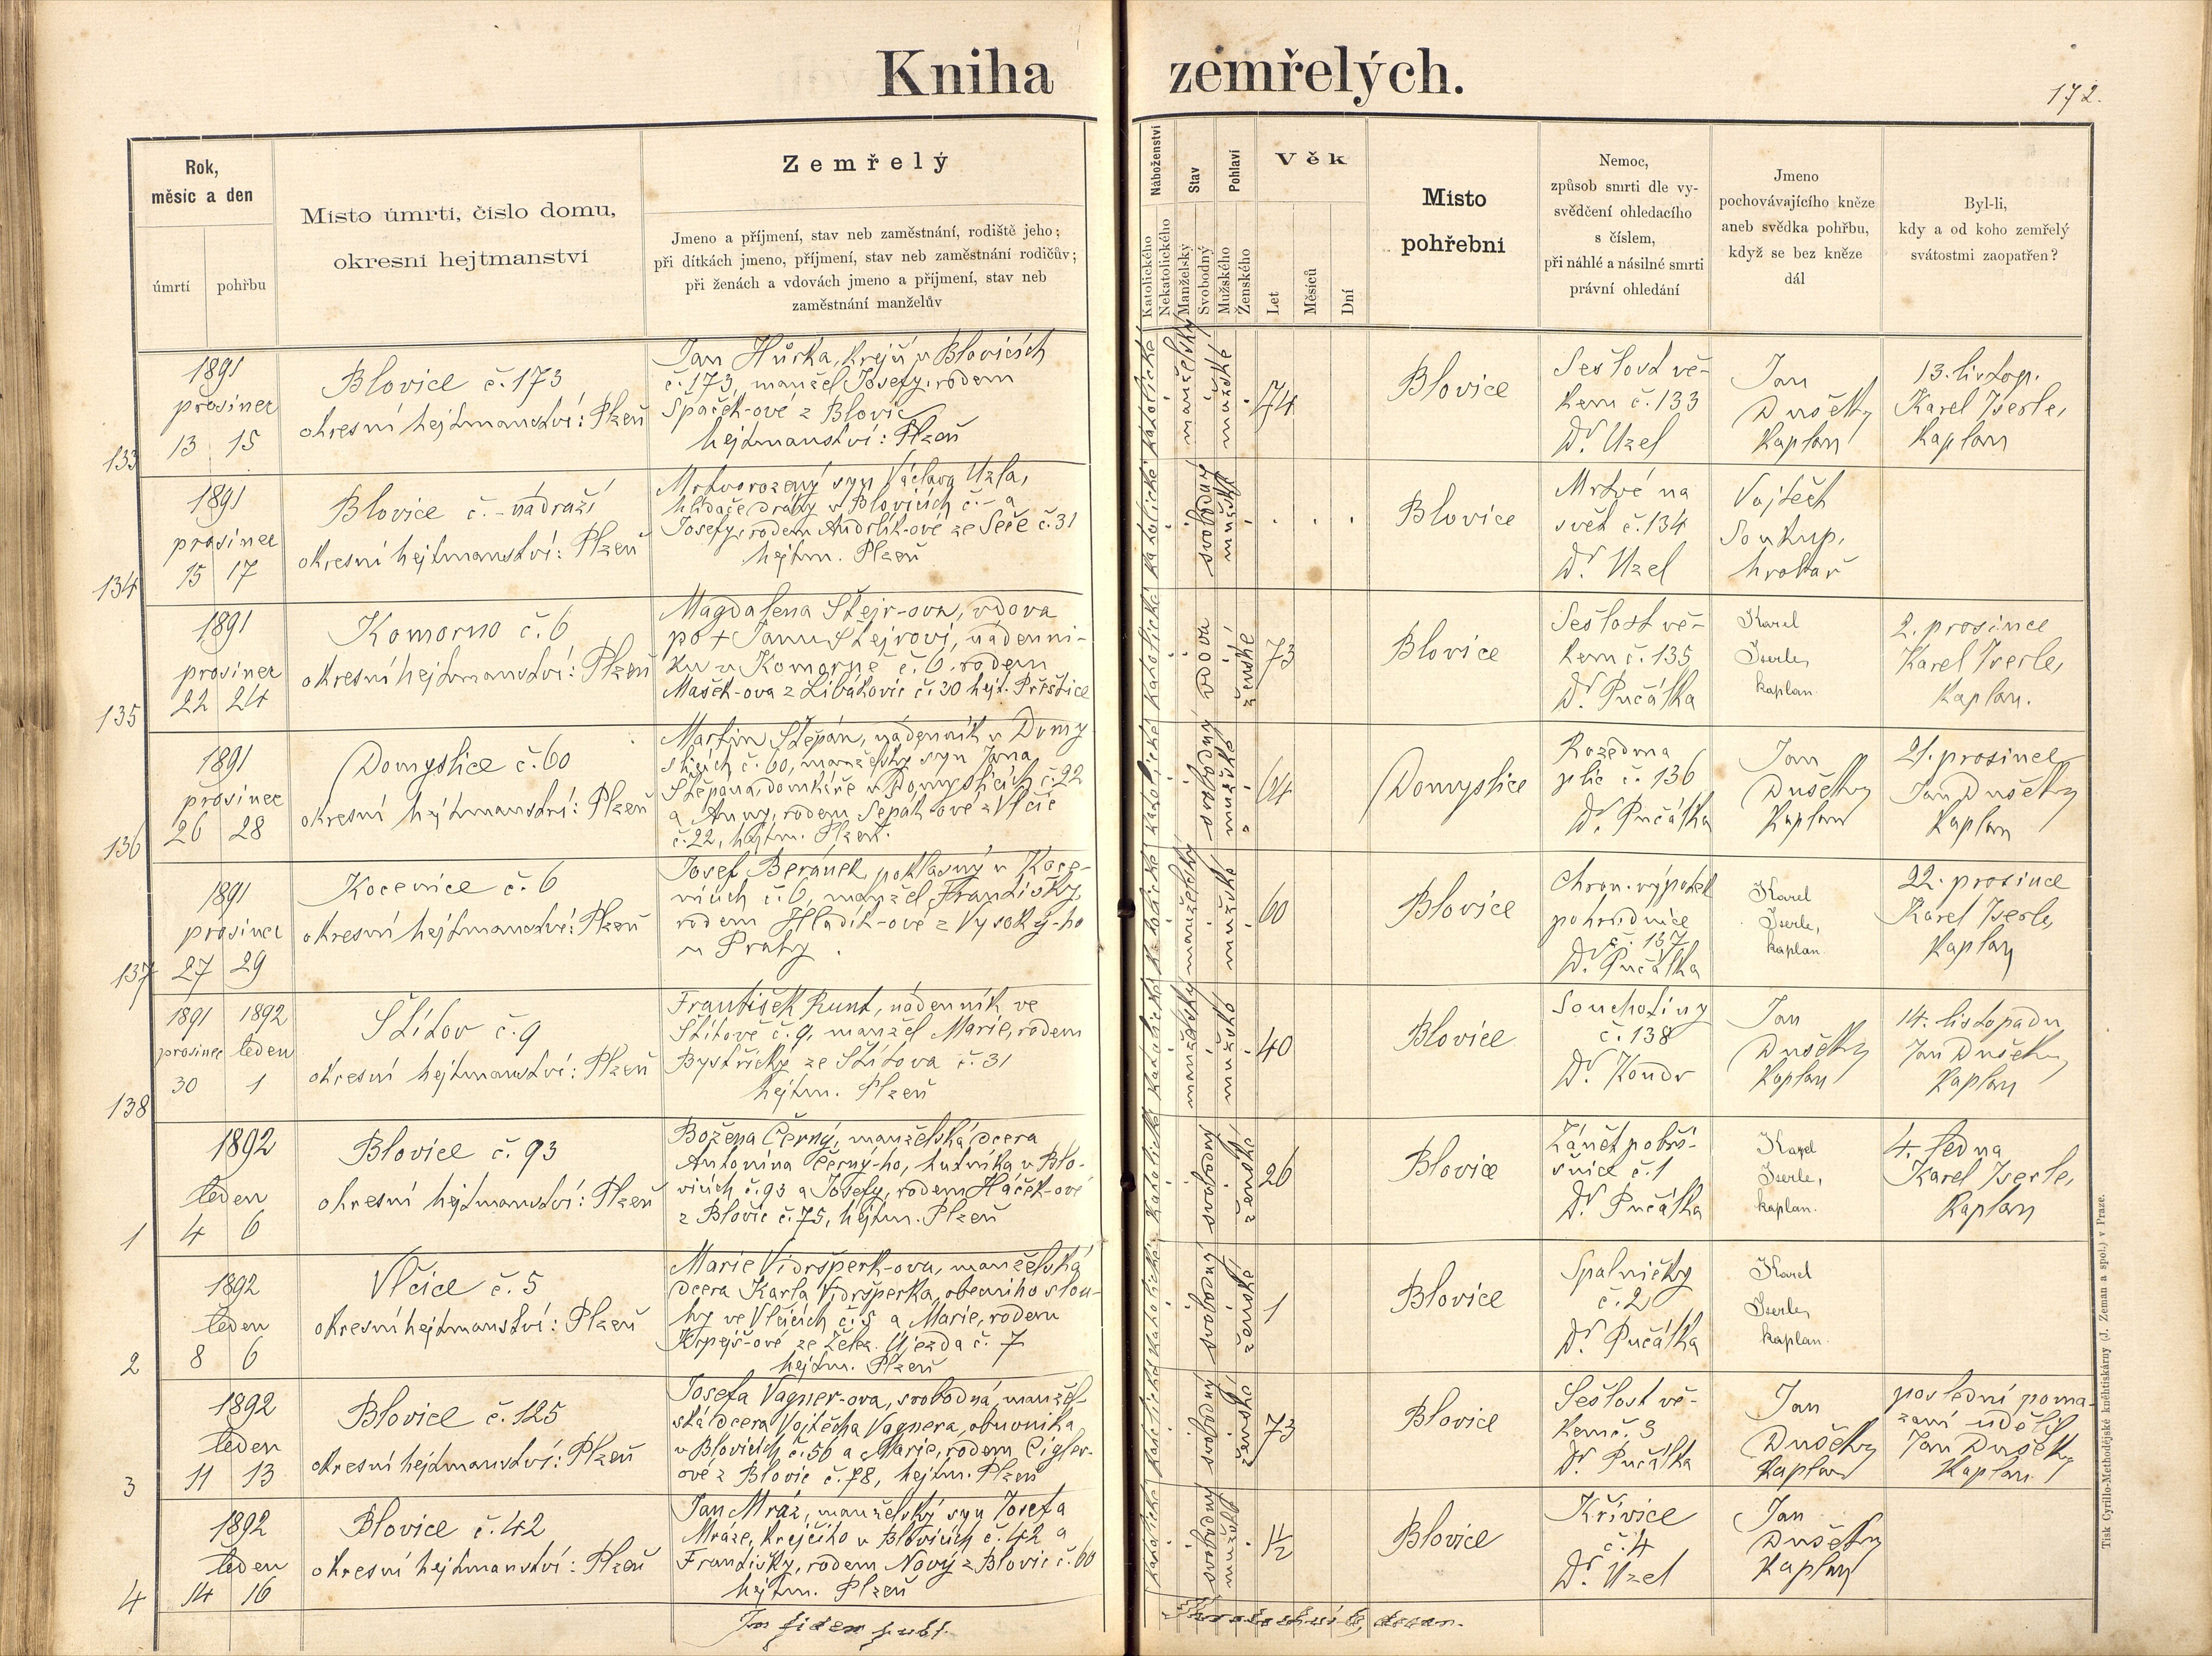 Kniha zemřelých.
172.
Rok,
měsíc a den
úmrtí
pohřbu
Místo úmrtí, číslo domu,
okresní hejtmanství
Zemřelý
Jmeno a příjmení, stav neb zaměstnání, rodiště jeho;
při dítkách jmeno, příjmení, stav neb zaměstnání rodičův;
při ženách a vdovách jmeno a příjmení, stav neb
zaměstnání manželův
Náboženství
Katolického
Nekatolického
Stav
Manželský
Svobodný
Pohlaví
Mužského
Ženského
Věk
Let
Měsíců
Dní
Místo
pohřební
Nemoc,
způsob smrti dle vy-
svědčení ohledacího
s číslem,
při náhlé a násilné smrti
právní ohledání
Jmeno
pochovávajícího kněze
aneb svědka pohřbu,
když se bez kněze
dál
Byl-li,
kdy a od koho zemřelý
svátostmi zaopatřen?
133
1891
prosinec
13 15
Blovice č. 173
okresní hejtmanství: Plzeň
Jan Hůrka, krejčí v Blovicích
č. 173, manžel Josefy, rodem
Špaček-ové z Blovic
hejtmanství: Plzeň
katolické
manželský
mužské
74
Blovice
Sešlost vě-
kem č. 133
Dr. Uzel
Jan
Dušek
kaplan
13. listop.
Karel Iserle,
kaplan
134
1891
prosinec
15 17
Blovice č. - nádraží
okresní hejtmanství: Plzeň
Mrtvorozený syn Václava Uzla,
hlídače dráhy v Blovicích č. - a
Josefy, rodem Andrlík-ové ze Seče č. 31
hejtm. Plzeň
katolické
svobodný
mužské
Blovice
Mrtvé na
svět č. 134
Dr. Uzel
Vojtěch
Soukup,
hrobař
135
1891
prosinec
22 24
Komorno č. 6
okresní hejtmanství: Plzeň
Magdalena Štejr-ova, vdova
po + Janu Štejrovi, nádenní-
ku v Komorně č. 6, rodem
Mašek-ova z Libákovic č. 30 hejt. Přeštice
katolické
vdova
ženské
73
Blovice
Sešlost vě-
kem č. 135
Dr. Pučálka
Karel
Iserle,
kaplan.
2. prosince
Karel Iserle,
kaplan.
136
1891
prosinec
26 28
Domyslice č. 60
okresní hejtmanství: Plzeň
Martin Štěpán, nádenník v Domy
slicích č. 60, manželský syn Jana
Štěpána, domkáře v Domyslicích č. 22
a Anny, rodem Sepák-ové z Vlčic
č. 22, hejtm. Plzeň.
katolické
svobodný
mužské
64
Domyslice
Rozedma
plic č. 136
Dr. Pučálka
Jan
Dušek
kaplan
21. prosince
Jan Dušek
kaplan
137
1891
prosinec
27 29
Kocenice č. 6
okresní hejtmanství: Plzeň
Josef Beránek, poklasný v Koce-
nicích č. 6, manžel Františky
rodem Hladík-ové z Vysoký-ho
u Prahy.
katolické
manželský
mužské
60
Blovice
Chron. výpotek
pohrudnice
č. 137
Dr. Pučálka
Karel
Iserle,
kaplan
22. prosince
Karel Iserle,
kaplan
138
1891 1892
prosinec leden
30 1
Štítov č. 9
okresní hejtmanství: Plzeň
František Runt, nádenník ve
Štítově č. 9, manžel Marie, rodem
Bystřický ze Štítova č. 31
hejtm. Plzeň
katolické
manželský
mužské
40
Blovice
Souchotiny
č. 138
Dr. Kondr
Jan
Dušek
kaplan
14. listopadu
Jan Dušek
kaplan
1
1892
leden
4 6
Blovice č. 93
okresní hejtmanství: Plzeň
Božena Černý, manželská dcera
Antonína Černý-ho, hutníka v Blo-
vicích č. 93 a Josefy, rodem Háček-ové
z Blovic č. 75, hejtm. Plzeň
katolické
svobodný
ženské
26
Blovice
Zánět pobři-
šnice č. 1
Dr. Pučálka
Karel
Iserle,
kaplan.
4. ledna
Karel Iserle,
kaplan
2
1892
leden
8 6
Vlčice č. 5
okresní hejtmanství: Plzeň
Marie Vidršperk-ova, manželská
dcera Karla Vidršperka, obecního slou-
hy ve Vlčicích č. 5 a Marie, rodem
Krpejš-ové ze Želez. Újezda č. 7
hejtm. Plzeň
katolické
svobodný
ženské
1
Blovice
Spalničky
č. 2
Dr. Pučálka
Karel
Iserle,
kaplan.
3
1892
leden
11 13
Blovice č. 125
okresní hejtmanství: Plzeň
Josefa Vágner-ova, svobodná, manžel-
ská dcera Vojtěcha Vagnera, obuvníka
v Blovicích č. 56 a Marie, rodem Cigler-
ové z Blovic č. 78, hejtm. Plzeň
katolické
svobodný
ženské
73
Blovice
Sešlost vě-
kem č. 3
Dr. Pučálka
Jan
Dušek
kaplan
poslední poma-
zání udělil
Jan Dušek
kaplan
4
1892
leden
14 16
Blovice č. 42
okresní hejtmanství: Plzeň
Jan Mráz, manželský syn Josefa
Mráze, krejčího v Blovicích č. 42 a
Františky, rodem Nový z Blovic č. 60
hejtm. Plzeň
katolické
svobodný
mužské
1/2
Blovice
Křivice
č. 4
Dr. Uzel
Jan
Dušek
kaplan
In fidem publ.
decan.
Tisk Cyrillo-Methodějské knihtiskárny (J. Zeman a spol.) v Praze.